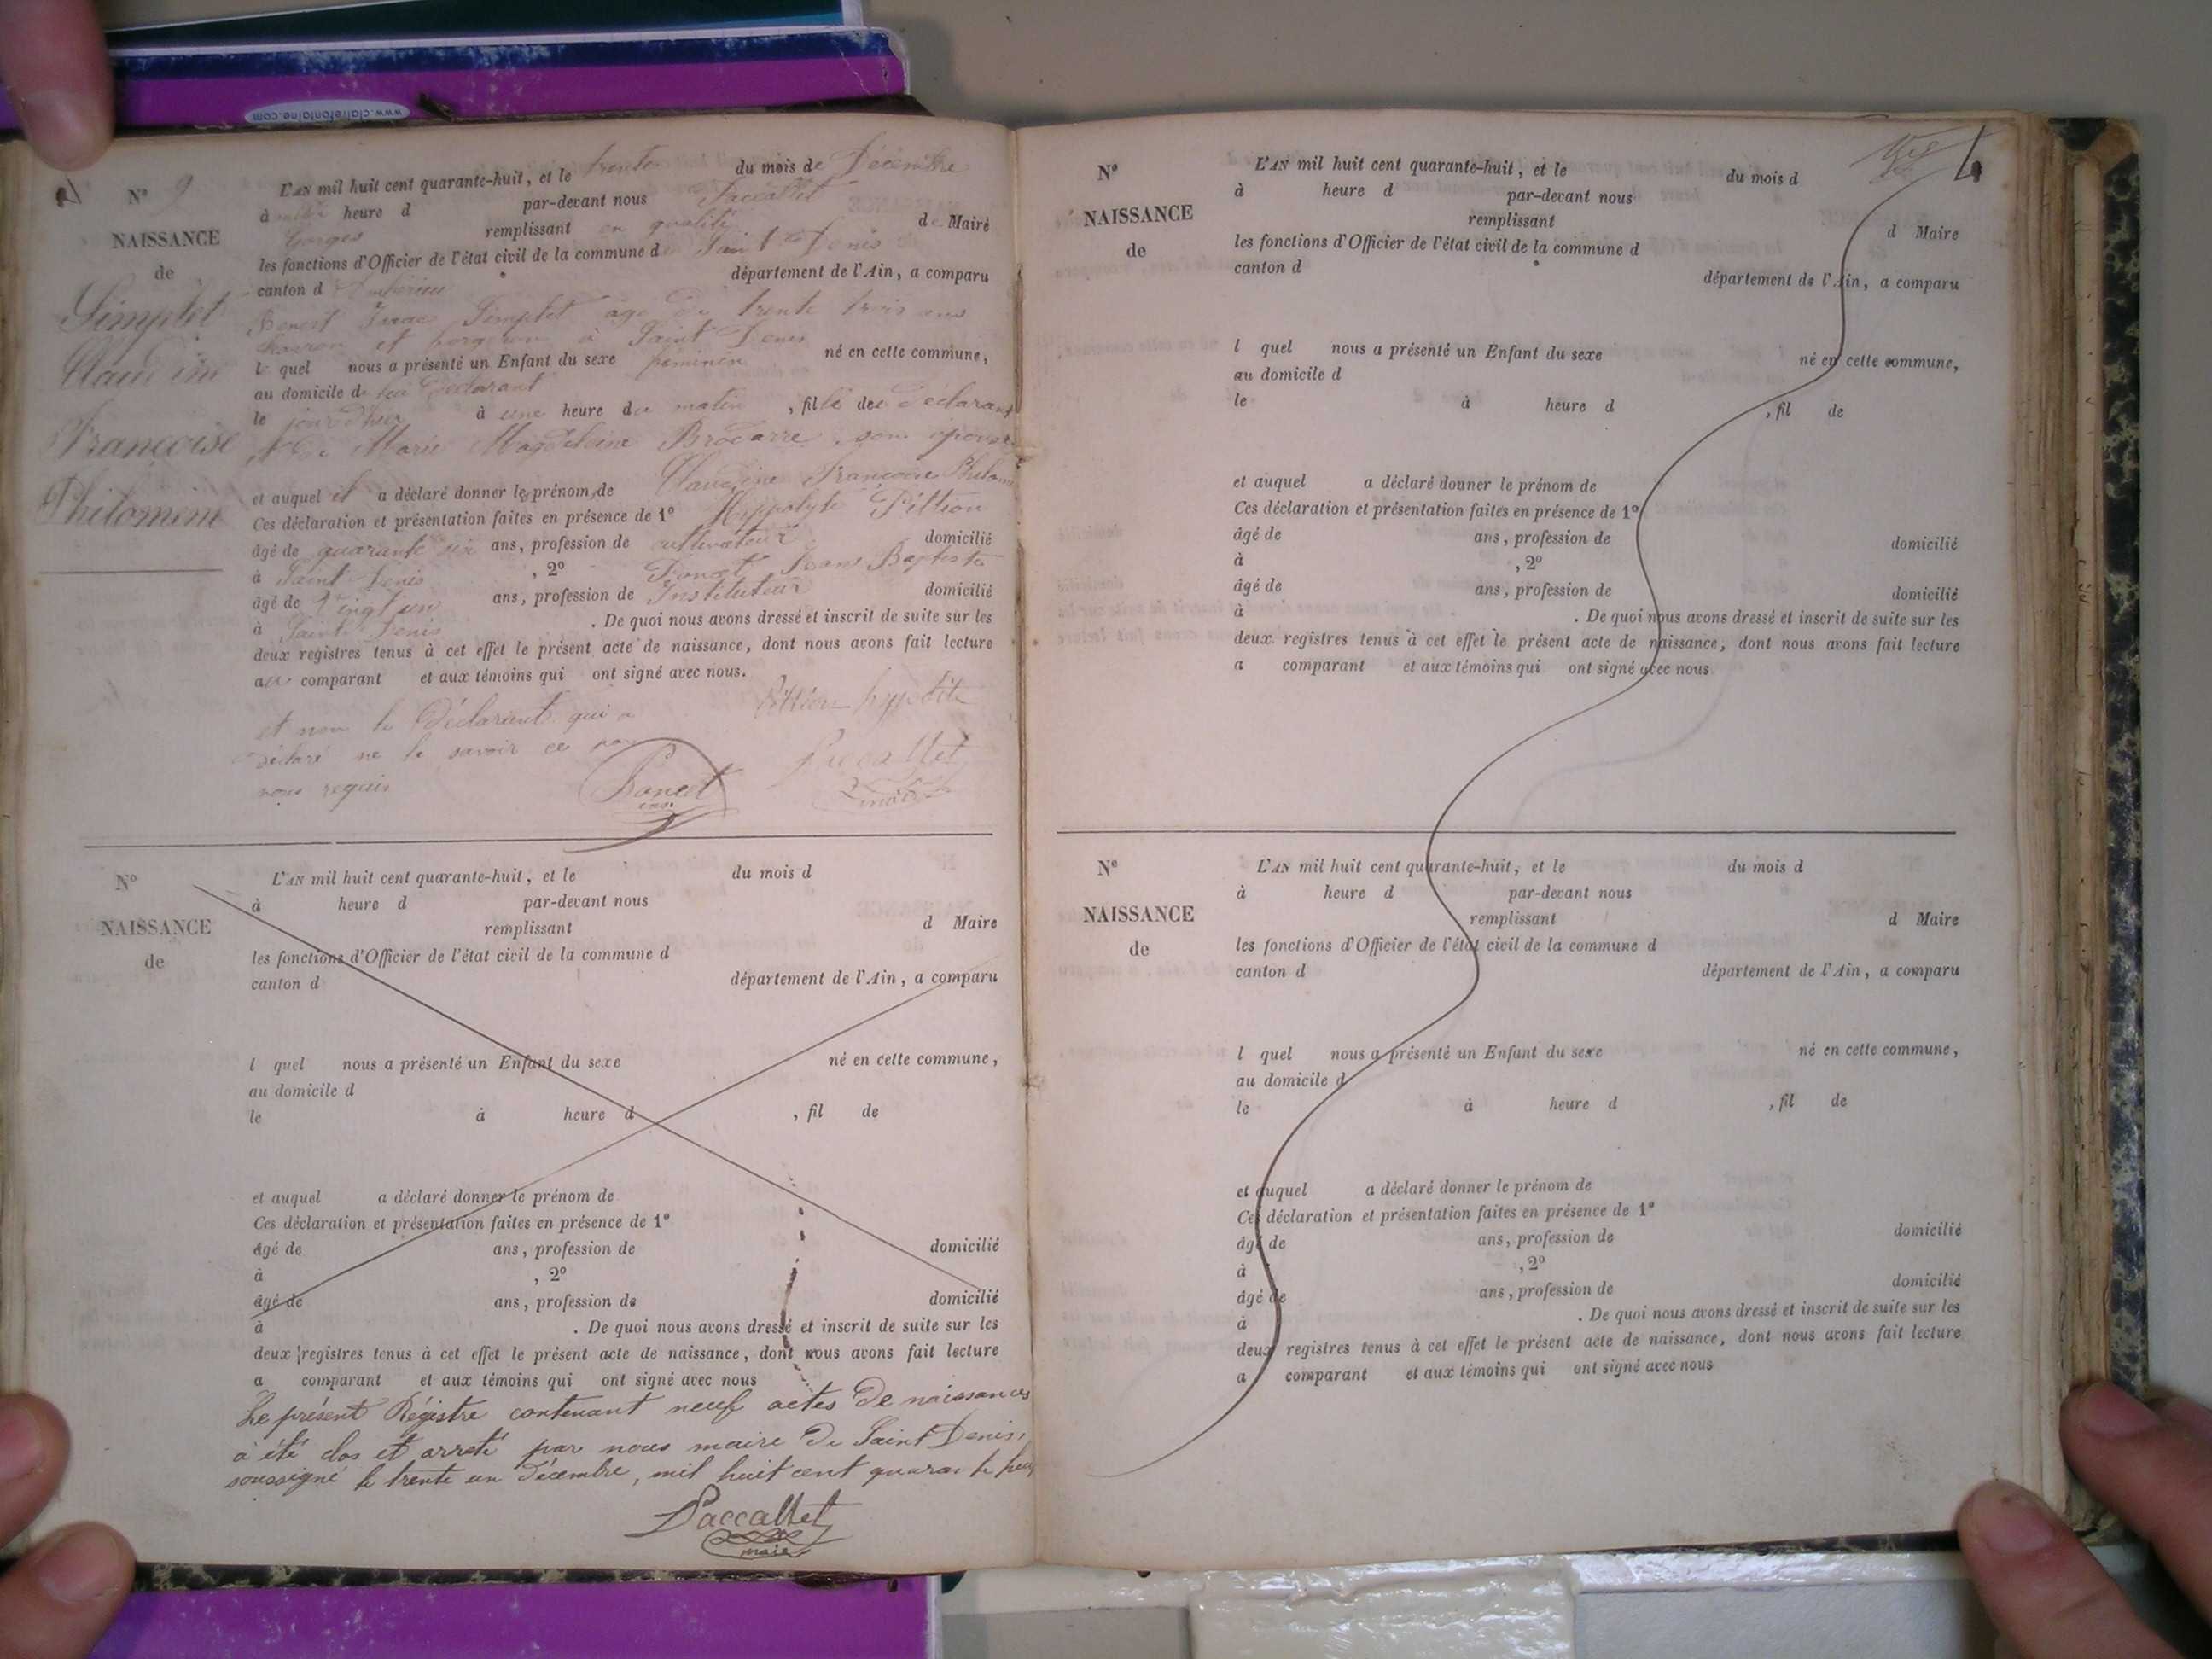 www.clairefontaine.com
N° 9
NAISSANCE
de
Simplet
Claudine
Françoise
Philomène
L'AN mil huit cent quarante-huit, et le trente du mois de Décembre
à heure d par-devant nous Paccallet
Georges remplissant en qualité de Maire
les fonctions d'Officier de l'état civil de la commune de Saint Denis
canton d'Ambérieu département de l'Ain, a comparu
Benoit Isaac Simplet agé de trente trois ans
charron et forgeron à Saint Denis
le quel nous a présenté un Enfant du sexe féminin né en cette commune,
au domicile de lui déclarant
le jourd'hui à une heure du matin, fille des déclarant
et de Marie Magdeleine Brodarre, son épouse
et auquel il a déclaré donner le prénom de Claudine Françoise Philom
Ces déclaration et présentation faites en présence de 1° Hyppolyte Pittion
âgé de quarante six ans, profession de cultivateur domicilié
à Saint Denis, 2° Poncet Jean Baptiste
âgé de Vingt un ans, profession de Instituteur domicilié
à Saint Denis. De quoi nous avons dressé et inscrit de suite sur les
deux registres tenus à cet effet le présent acte de naissance, dont nous avons fait lecture
au comparant et aux témoins qui ont signé avec nous.
et non le Déclarant qui a
déclaré ne le savoir ce par
nous requis
Pittion hypolite
Poncet
Paccallet
maire
N°
NAISSANCE
de
L'AN mil huit cent quarante-huit, et le du mois d
à heure d par-devant nous
remplissant d Maire
les fonctions d'Officier de l'état civil de la commune d
canton d département de l'Ain, a comparu
l quel nous a présenté un Enfant du sexe né en cette commune,
au domicile d
le à heure d , fil de
et auquel a déclaré donner le prénom de
Ces déclaration et présentation faites en présence de 1°
âgé de ans, profession de domicilié
à , 2°
âgé de ans, profession de domicilié
à . De quoi nous avons dressé et inscrit de suite sur les
deux registres tenus à cet effet le présent acte de naissance, dont nous avons fait lecture
a comparant et aux témoins qui ont signé avec nous
Le présent Régistre contenant neuf actes de naissances
a été clos et arreté par nous maire de Saint Denis,
soussigné le trente un Décembre, mil huit cent quarante huit
Paccallet
maire
N°
NAISSANCE
de
L'AN mil huit cent quarante-huit, et le du mois d
à heure d par-devant nous
remplissant d Maire
les fonctions d'Officier de l'état civil de la commune d
canton d département de l'Ain, a comparu
l quel nous a présenté un Enfant du sexe né en cette commune,
au domicile d
le à heure d , fil de
et auquel a déclaré donner le prénom de
Ces déclaration et présentation faites en présence de 1°
âgé de ans, profession de domicilié
à , 2°
âgé de ans, profession de domicilié
à . De quoi nous avons dressé et inscrit de suite sur les
deux registres tenus à cet effet le présent acte de naissance, dont nous avons fait lecture
a comparant et aux témoins qui ont signé avec nous
N°
NAISSANCE
de
L'AN mil huit cent quarante-huit, et le du mois d
à heure d par-devant nous
remplissant d Maire
les fonctions d'Officier de l'état civil de la commune d
canton d département de l'Ain, a comparu
l quel nous a présenté un Enfant du sexe né en cette commune,
au domicile d
le à heure d , fil de
et auquel a déclaré donner le prénom de
Ces déclaration et présentation faites en présence de 1°
âgé de ans, profession de domicilié
à , 2°
âgé de ans, profession de domicilié
à . De quoi nous avons dressé et inscrit de suite sur les
deux registres tenus à cet effet le présent acte de naissance, dont nous avons fait lecture
a comparant et aux témoins qui ont signé avec nous